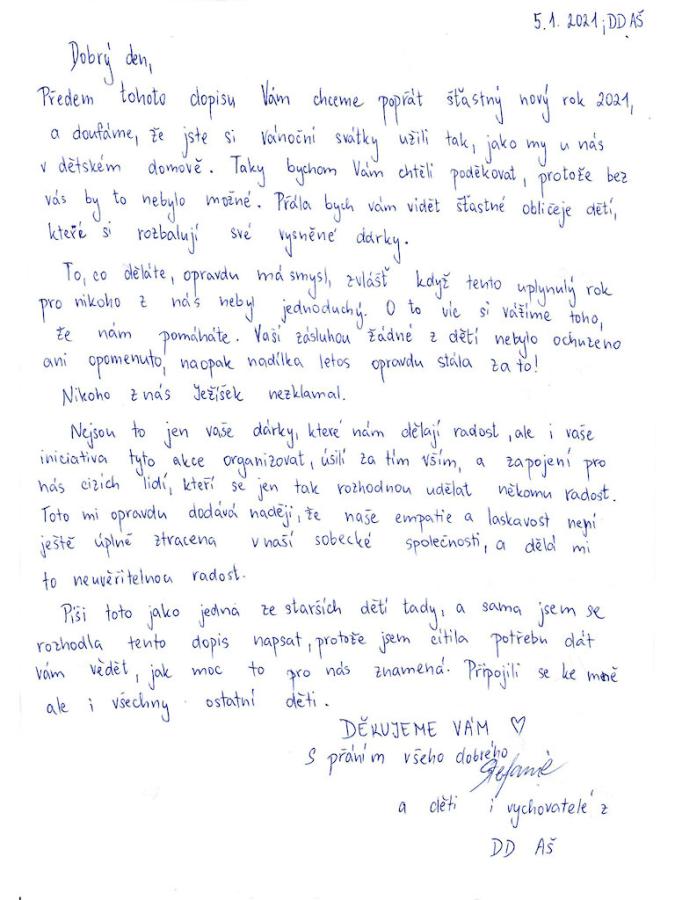 5.1. 2021, DD AŠ
Dobrý den,
Předem tohoto dopisu Vám chceme popřát šťastný nový rok 2021,
a doufáme, že jste si vánoční svátky užili tak, jako my u nás
v dětském domově. Taky bychom Vám chtěli poděkovat, protože bez
vás by to nebylo možné. Přála bych vám vidět šťastné obličeje dětí,
které si rozbalují své vysněné dárky.
To, co děláte, opravdu má smysl, zvlášť když tento uplynulý rok
pro nikoho z nás nebyl jednoduchý. O to víc si vážíme toho,
že nám pomáháte. Vaší zásluhou žádné z dětí nebylo ochuzeno
ani opomenuto, naopak nadílka letos opravdu stála za to!
Nikoho z nás Ježíšek nezklamal.
Nejsou to jen vaše dárky, které nám dělají radost, ale i vaše
iniciativa tyto akce organizovat, úsilí za tím vším, a zapojení pro
nás cizích lidí, kteří se jen tak rozhodnou udělat někomu radost.
Toto mi opravdu dodává naději, že naše empatie a laskavost není
ještě úplně ztracena v naší sobecké společnosti, a dělá mi
to neuvěřitelnou radost.
Píši toto jako jedna ze starších dětí tady, a sama jsem se
rozhodla tento dopis napsat, protože jsem cítila potřebu dát
vám vědět, jak moc to pro nás znamená. Připojili se ke mně
ale i všechny ostatní děti.
DĚKUJEME VÁM ♡
S přáním všeho dobrého
Stefanie
a děti i vychovatelé z
DD AŠ